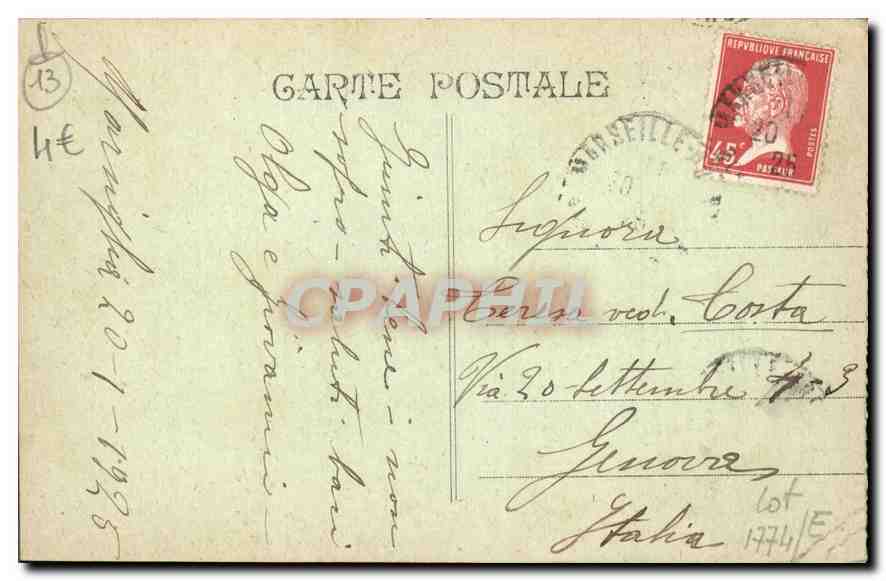 13
4€
CARTE POSTALE
REPVBLIQUE FRANÇAISE
45c
POSTES
PASTEUR
MARSEILLE
20
Marsiglia 20-1-1925
Giunti bene - non
soffro - saluti baci
Olga e Giovanni -
CPAPHIL
Signora
ved. Costa
Via 20 Settembre
3
Genova
Italia
lot
1774/E